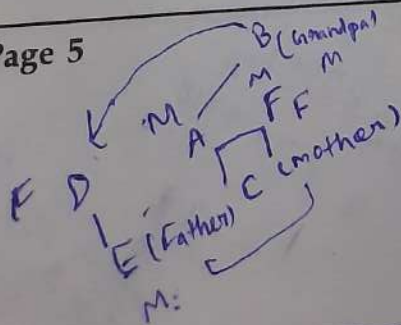 Page 5
B (Grandpa)
M M
M A F F
F D C (mother)
E (Father)
M: